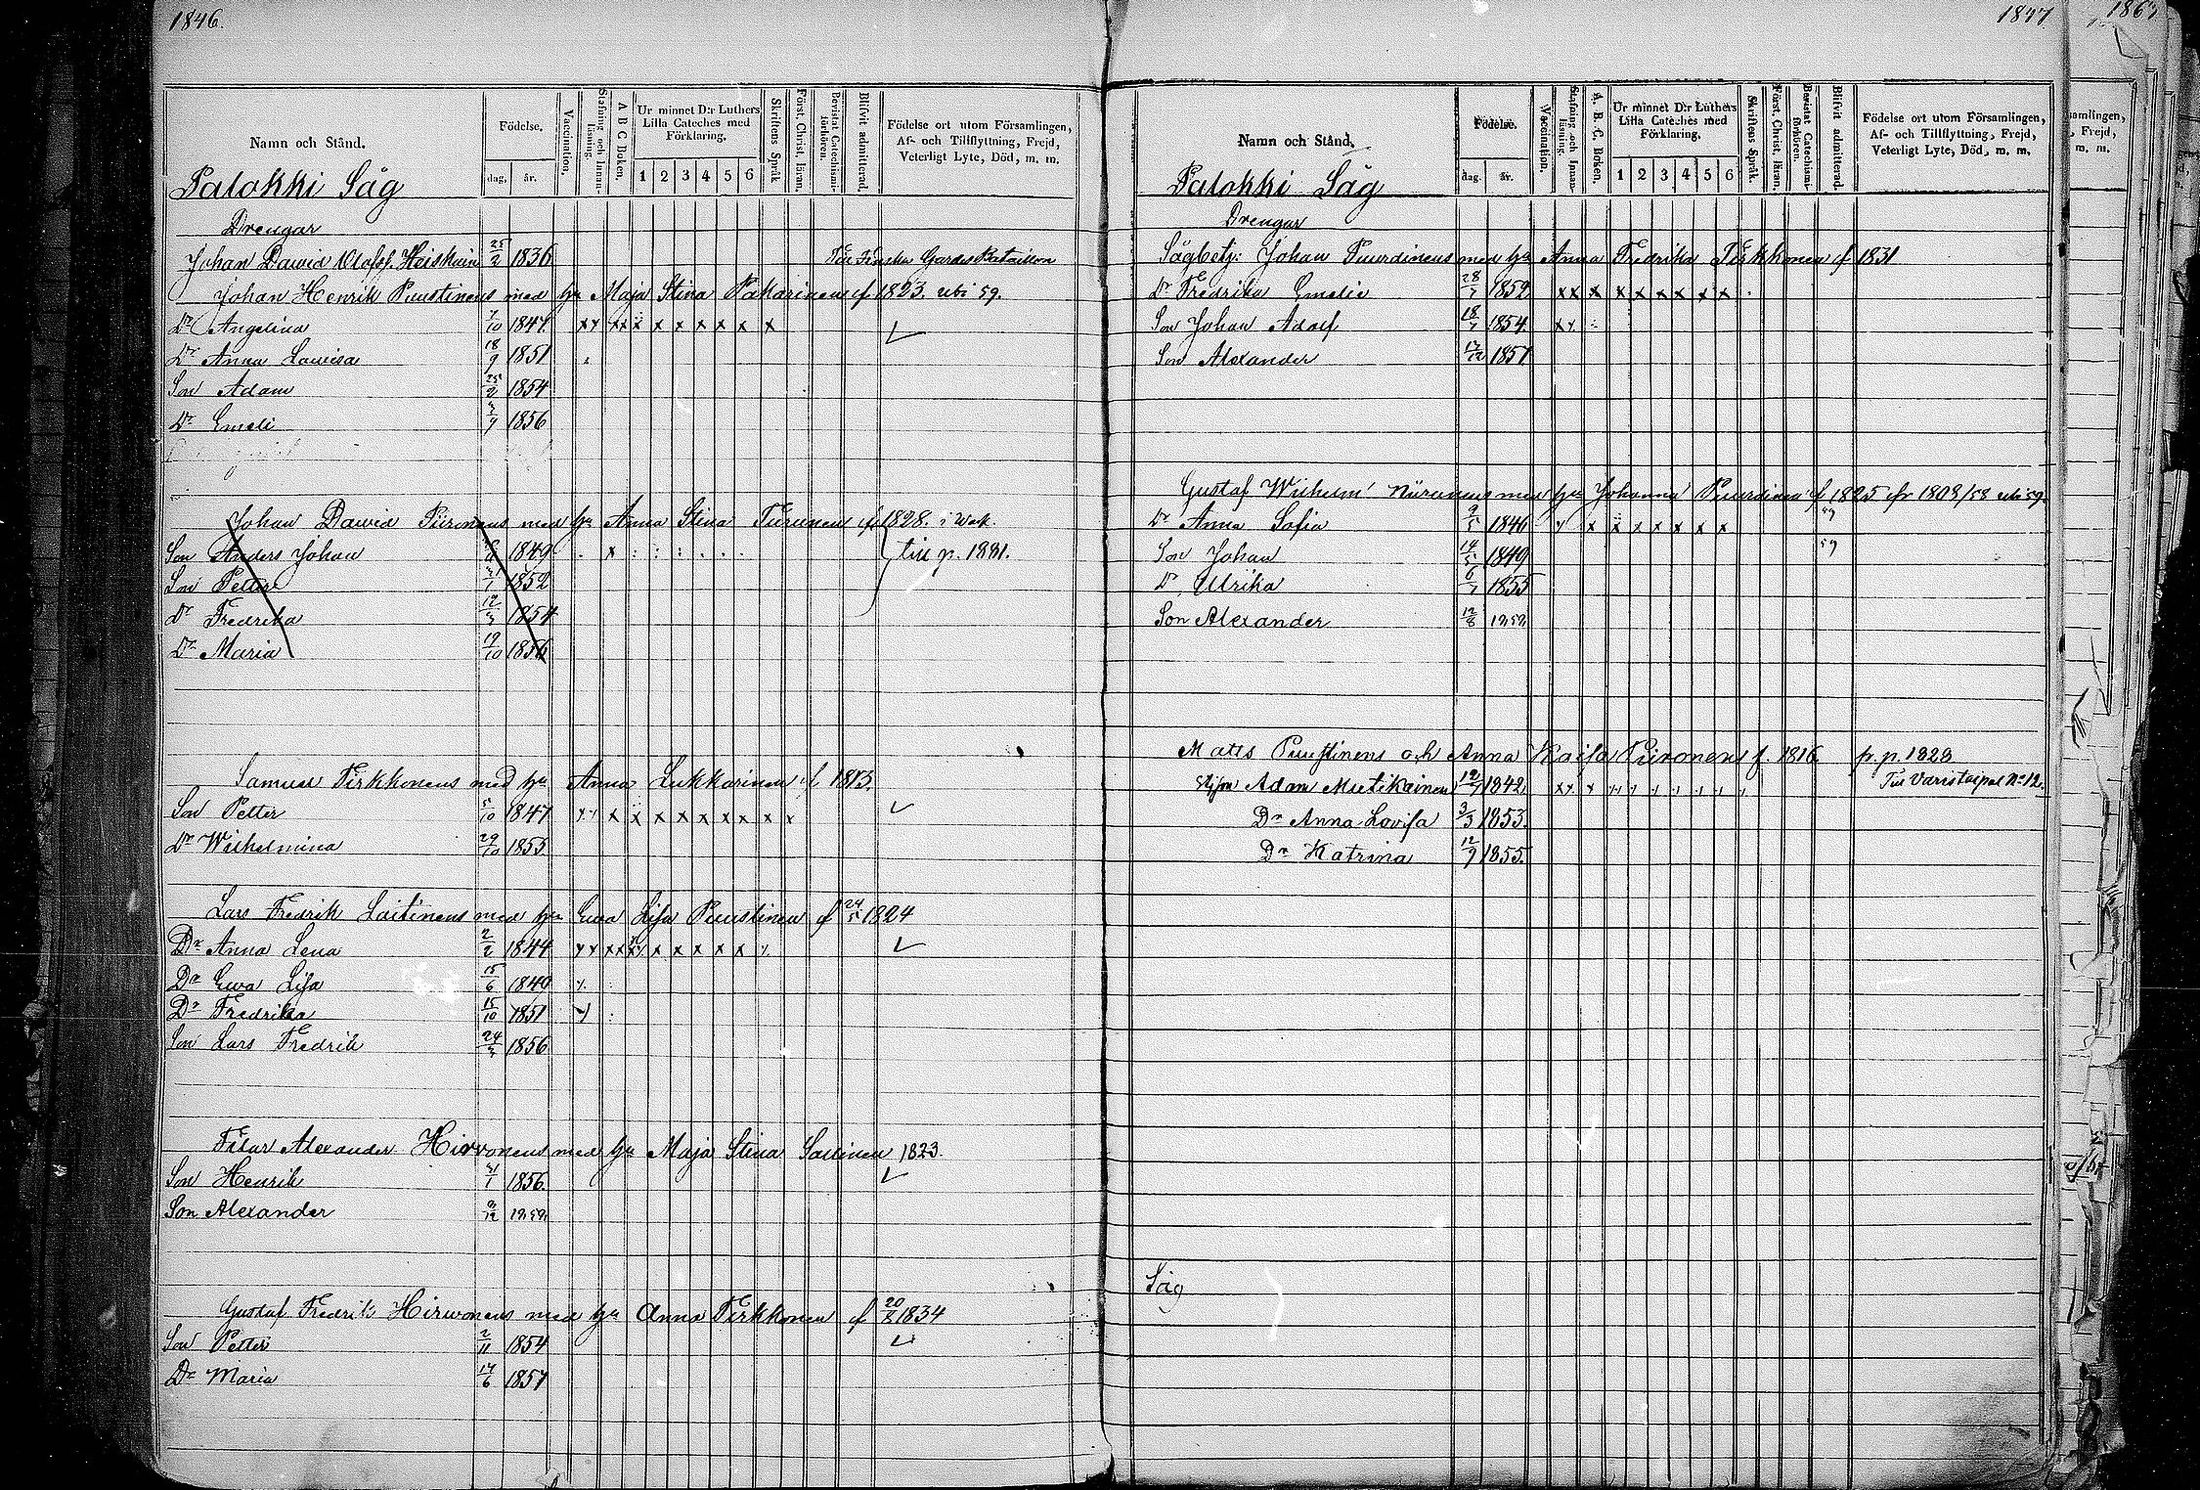 1846.
Namn och Stånd.
Födelse.
dag, år.
Vaccination.
Stafning och Innanläsning.
A B C Boken.
Ur minnet D:r Luthers Lilla Cateches med Förklaring.
1 2 3 4 5 6
Skriftens Språk
Först. Christ. läran.
Bevistat Catechismiförhören.
Blifvit admitterad.
Födelse ort utom Församlingen, Af- och Tillflyttning, Frejd, Veterligt Lyte, Död, m. m.
Palokki Såg
Drengar
Johan Dawid Olofss. Heiskain 25/2 1836 Finska Gardes Bataillon
Johan Henrik Puustinens med h:u Maja Stina Pakarinen f 1823. ubi 59.
Dr Angelina 7/10 1847. x x x x x x x x x x x
Dr Anna Lowisa 18/9 1851
Son Adam 25/2 1854
Dr Emeli 1856
Johan Dawid Piironens med h:u Anna Stina Turunen f 1828.
Son Anders Johan 1849 till p. 1881.
Son Petter 1852
Dr Fredrika 12/3 1854
Dr Maria 19/10 1856
Samuel Tirkkonens med h:u Anna Lukkarinen f 1813.
Son Petter 5/10 1847 x x x x x x x x x x
Dr Wilhelmina 29/10 1855
Lars Fredrik Laitinens med h:u Ewa Lisa Puustinen f 24/5 1824
Dr Anna Lena 2/2 1844
Dr Ewa Lisa 15/6 1849
Dr Fredrika 15/10 1851
Son Lars Fredrik 24/3 1856
Alexander Hirvonens med h:u Maja Stina Sallinen 1823.
Son Henrik 31/1 1856
Son Alexander
Gustaf Fredrik Hirwonens med h:u Anna Tirkkonen f 20/8 1834
Son Petter 2/11 1854
Dr Maria 17/6 1857
1847
1867
Namn och Stånd.
Födelse.
dag. år.
Vaccination.
Stafning och Innanläsning.
A. B. C. Boken.
Ur minnet D:r Luthers Lilla Cateches med Förklaring.
1 2 3 4 5 6
Skriftens Språk.
Först. Christ. läran.
Bevistat Catechismiförhören.
Blifvit admitterad.
Födelse ort utom Församlingen, Af- och Tillflyttning, Frejd, Veterligt Lyte, Död, m. m.
Palokki Såg
Drengar
Sågbetj: Johan Puurdinens med h:u Anna Fredrika Tirkkonen f 1831
Dr Fredrika Emelie 28/7 1852 x x x x x x x x x
Son Johan Adolf 18/7 1854
Son Alexander 1857
Gustaf Wilhelm Niiranens med h:u Johanna Puurdinen f 1825 fr 1808/58 ubi 59.
Dr Anna Sofia 9/5 1846 59
Son Johan 14/5 1849 59
Dr Ulrika 6/7 1855
Son Alexander 12/8
Matts Puustinens och Anna Kaisa Piironens f. 1816. p. p. 1828
Styfson Adam Mietikainen 12/7 1842 Till Varistaipal No 12.
Dr Anna Lovisa 3/3 1853.
Dr Katrina 12/9 1855.
Såg